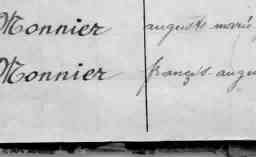 Monnier auguste marie
Monnier françois augu